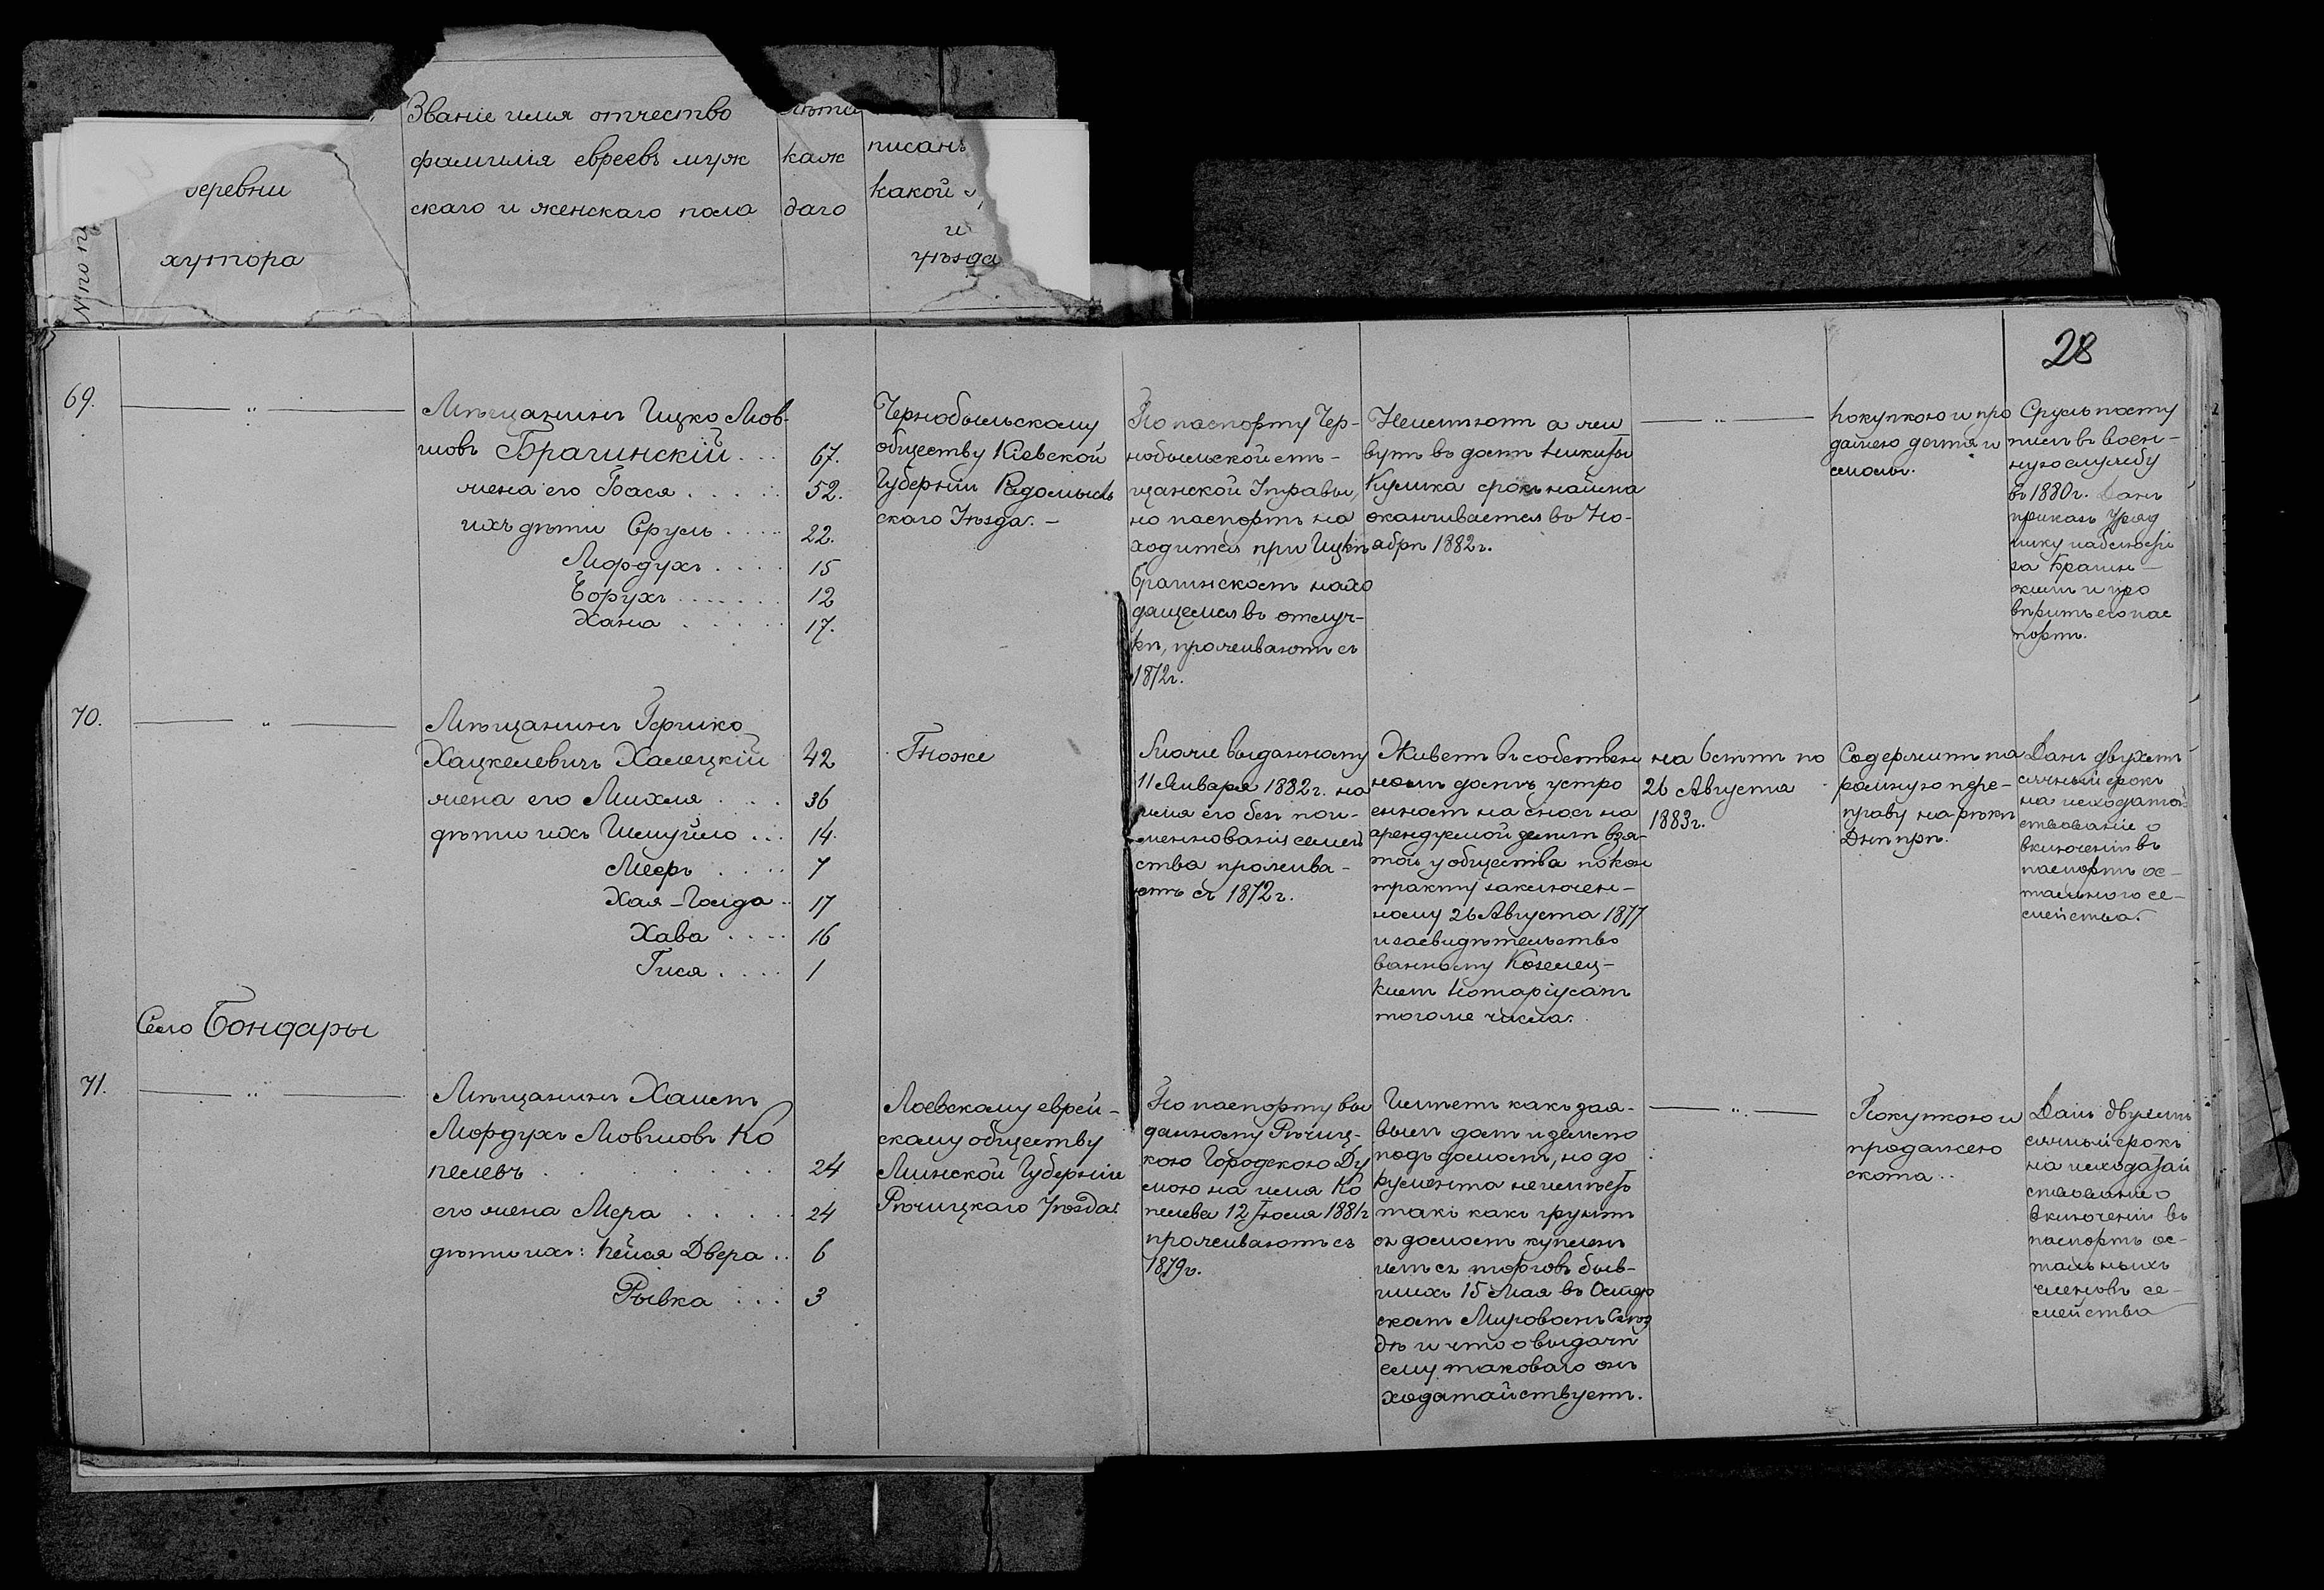 Званіе имя отчество
фамилія евреевъ муж
скаго и женскаго пола
лѣта
каж
даго
писанъ
какой
и
уѣзда
деревни
хутора
№ по п
28
69.
— „ —
Мѣщанинъ Ицко Мов-
шовъ Брагинскій . . .
жена его Бася . . . . .
ихъ дѣти Сруль . . . .
Мордухъ . . . .
Борухъ . . . . . .
Хана . . . . .
67.
52.
22.
15
12
17.
Чернобыльскому
обществу Кіевской
Губерніи Радомысль
скаго Уѣзда. –
По паспорту Чер-
нобыльской мѣ-
щанской Управы,
но паспортъ на
ходится при Ицкѣ
Брагинскомъ нахо
дящемся въ отлуч-
кѣ, проживаютъ съ
1872г.
Неимѣютъ а жи
вутъ въ домѣ Никиты
Кулика срокъ найма
оканчивается въ Но-
ябрѣ 1882г.
— „ —
Покупкою и про
дажею дегтя и
смолы.
Сруль посту
пилъ въ воен-
ную службу
въ 1880г. Данъ
приказъ Уряд
нику
за Брагин-
скимъ и про
вѣрить его пас
портъ.
70.
— „ —
Мѣщанинъ Гершко
Хацкелевичъ Халецкій
жена его Михля . . .
дѣти ихъ Шмуйло . . .
Мееръ . . . .
Хая-Голда . .
Хава . . . .
Гися . . . .
42
36
14.
7
17
16
1
Тоже
Тоже выданному
11 Января 1882г. на
имя его безъ пои-
менованія семей
ства прожива-
етъ съ 1872г.
Живетъ въ собствен
номъ домѣ устро
енномъ на сносъ на
арендуемой землѣ взя-
той у общества по кон
тракту заключен-
ному 26 Августа 1877
и засвидѣтельство
ванному Козелец-
кимъ Нотаріусомъ
тогоже числа.
на 6 лѣтъ по
26 Августа
1883г.
Содержитъ па
ромную пере-
праву на рѣкѣ
Днѣпрѣ.
Данъ двухмѣ
сячный срокъ
на исходатай
ствованіе о
включеніи въ
паспортъ ос-
тальнаго се-
мейства.
Село Бондары
71.
— „ —
Мѣщанинъ Хаимъ
Мордухъ Мовшовъ Ко
пелевъ . . . . . . .
его жена Мера . . . . .
дѣти ихъ: Нейся Двера . .
Рывка . . .
24
24
6
3
Лоевскому еврей-
скому обществу
Минской Губерніи
Рѣчицкаго Уѣзда
По паспорту вы
данному Рѣчиц-
кою Городскою Ду
мою на имя Ко
пелева 12 Іюля 1881г
проживаютъ съ
1879г.
Имѣетъ какъ зая-
вилъ домъ и землю
подъ домомъ, но до
кумента неимѣетъ
такъ какъ грунтъ
съ домомъ купленъ
имъ съ торговъ быв-
шихъ 15 Мая въ Остер
скомъ Мировомъ Съѣз
дѣ и что о выдачи
ему таковаго онъ
ходатайствуетъ.
— „ —
Покупкою и
продажею
скота . .
Данъ двухмѣ
сячный срокъ
на исходатай
ствованіе о
включеніи въ
паспортъ ос-
тальныхъ
членовъ се-
мейства